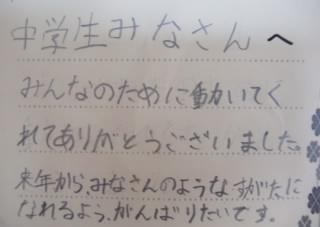 中学生みなさんへ
みんなのために動いてく
れてありがとうございました。
来年から、みなさんのようなすがたに
なれるよう、がんばりたいです。